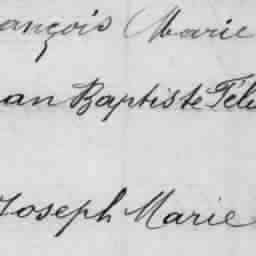 ançois Marie
an Baptiste Féli
Joseph Marie